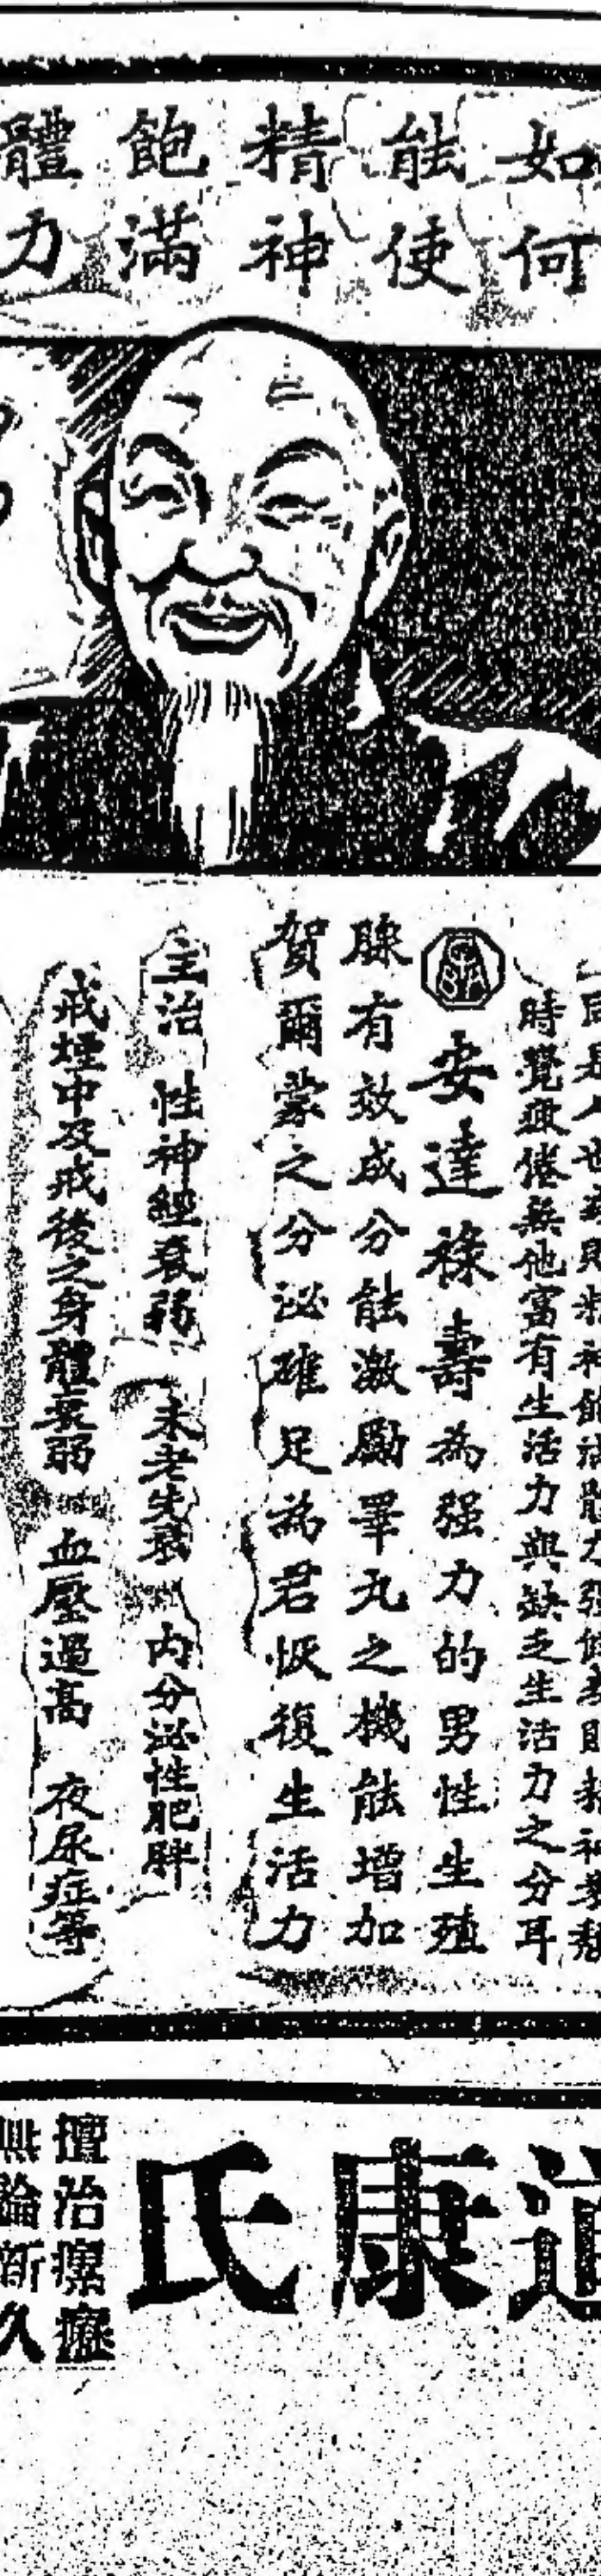 如何
能使
精神
飽滿
體力
同是人也 則精神飽滿體力強健 則精神
時覺疲倦無他富有生活力與缺乏生活力之分耳
安達祿壽為强力的男性生殖
腺有效成分能激勵睪丸之機能增加
賀爾蒙之分泌確足為君恢復生活力
主治 性神經衰弱 未老先衰 內分泌性肥胖
戒煙中及戒後之身體衰弱 血壓過高 夜尿症等
道康氏
擅治瘰癧
無論新久